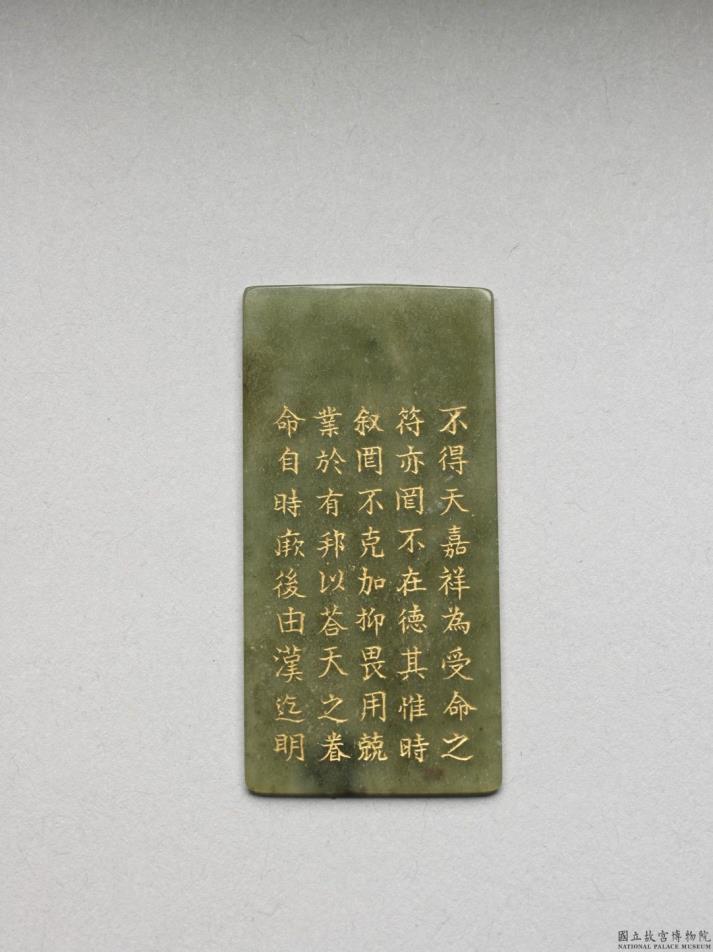 不得天嘉祥為受命之
符亦罔不在德其惟時
叙罔不克加抑畏用兢
業於有邦以荅天之眷
命自時厥後由漢迄明
國立故宮博物院
NATIONAL PALACE MUSEUM